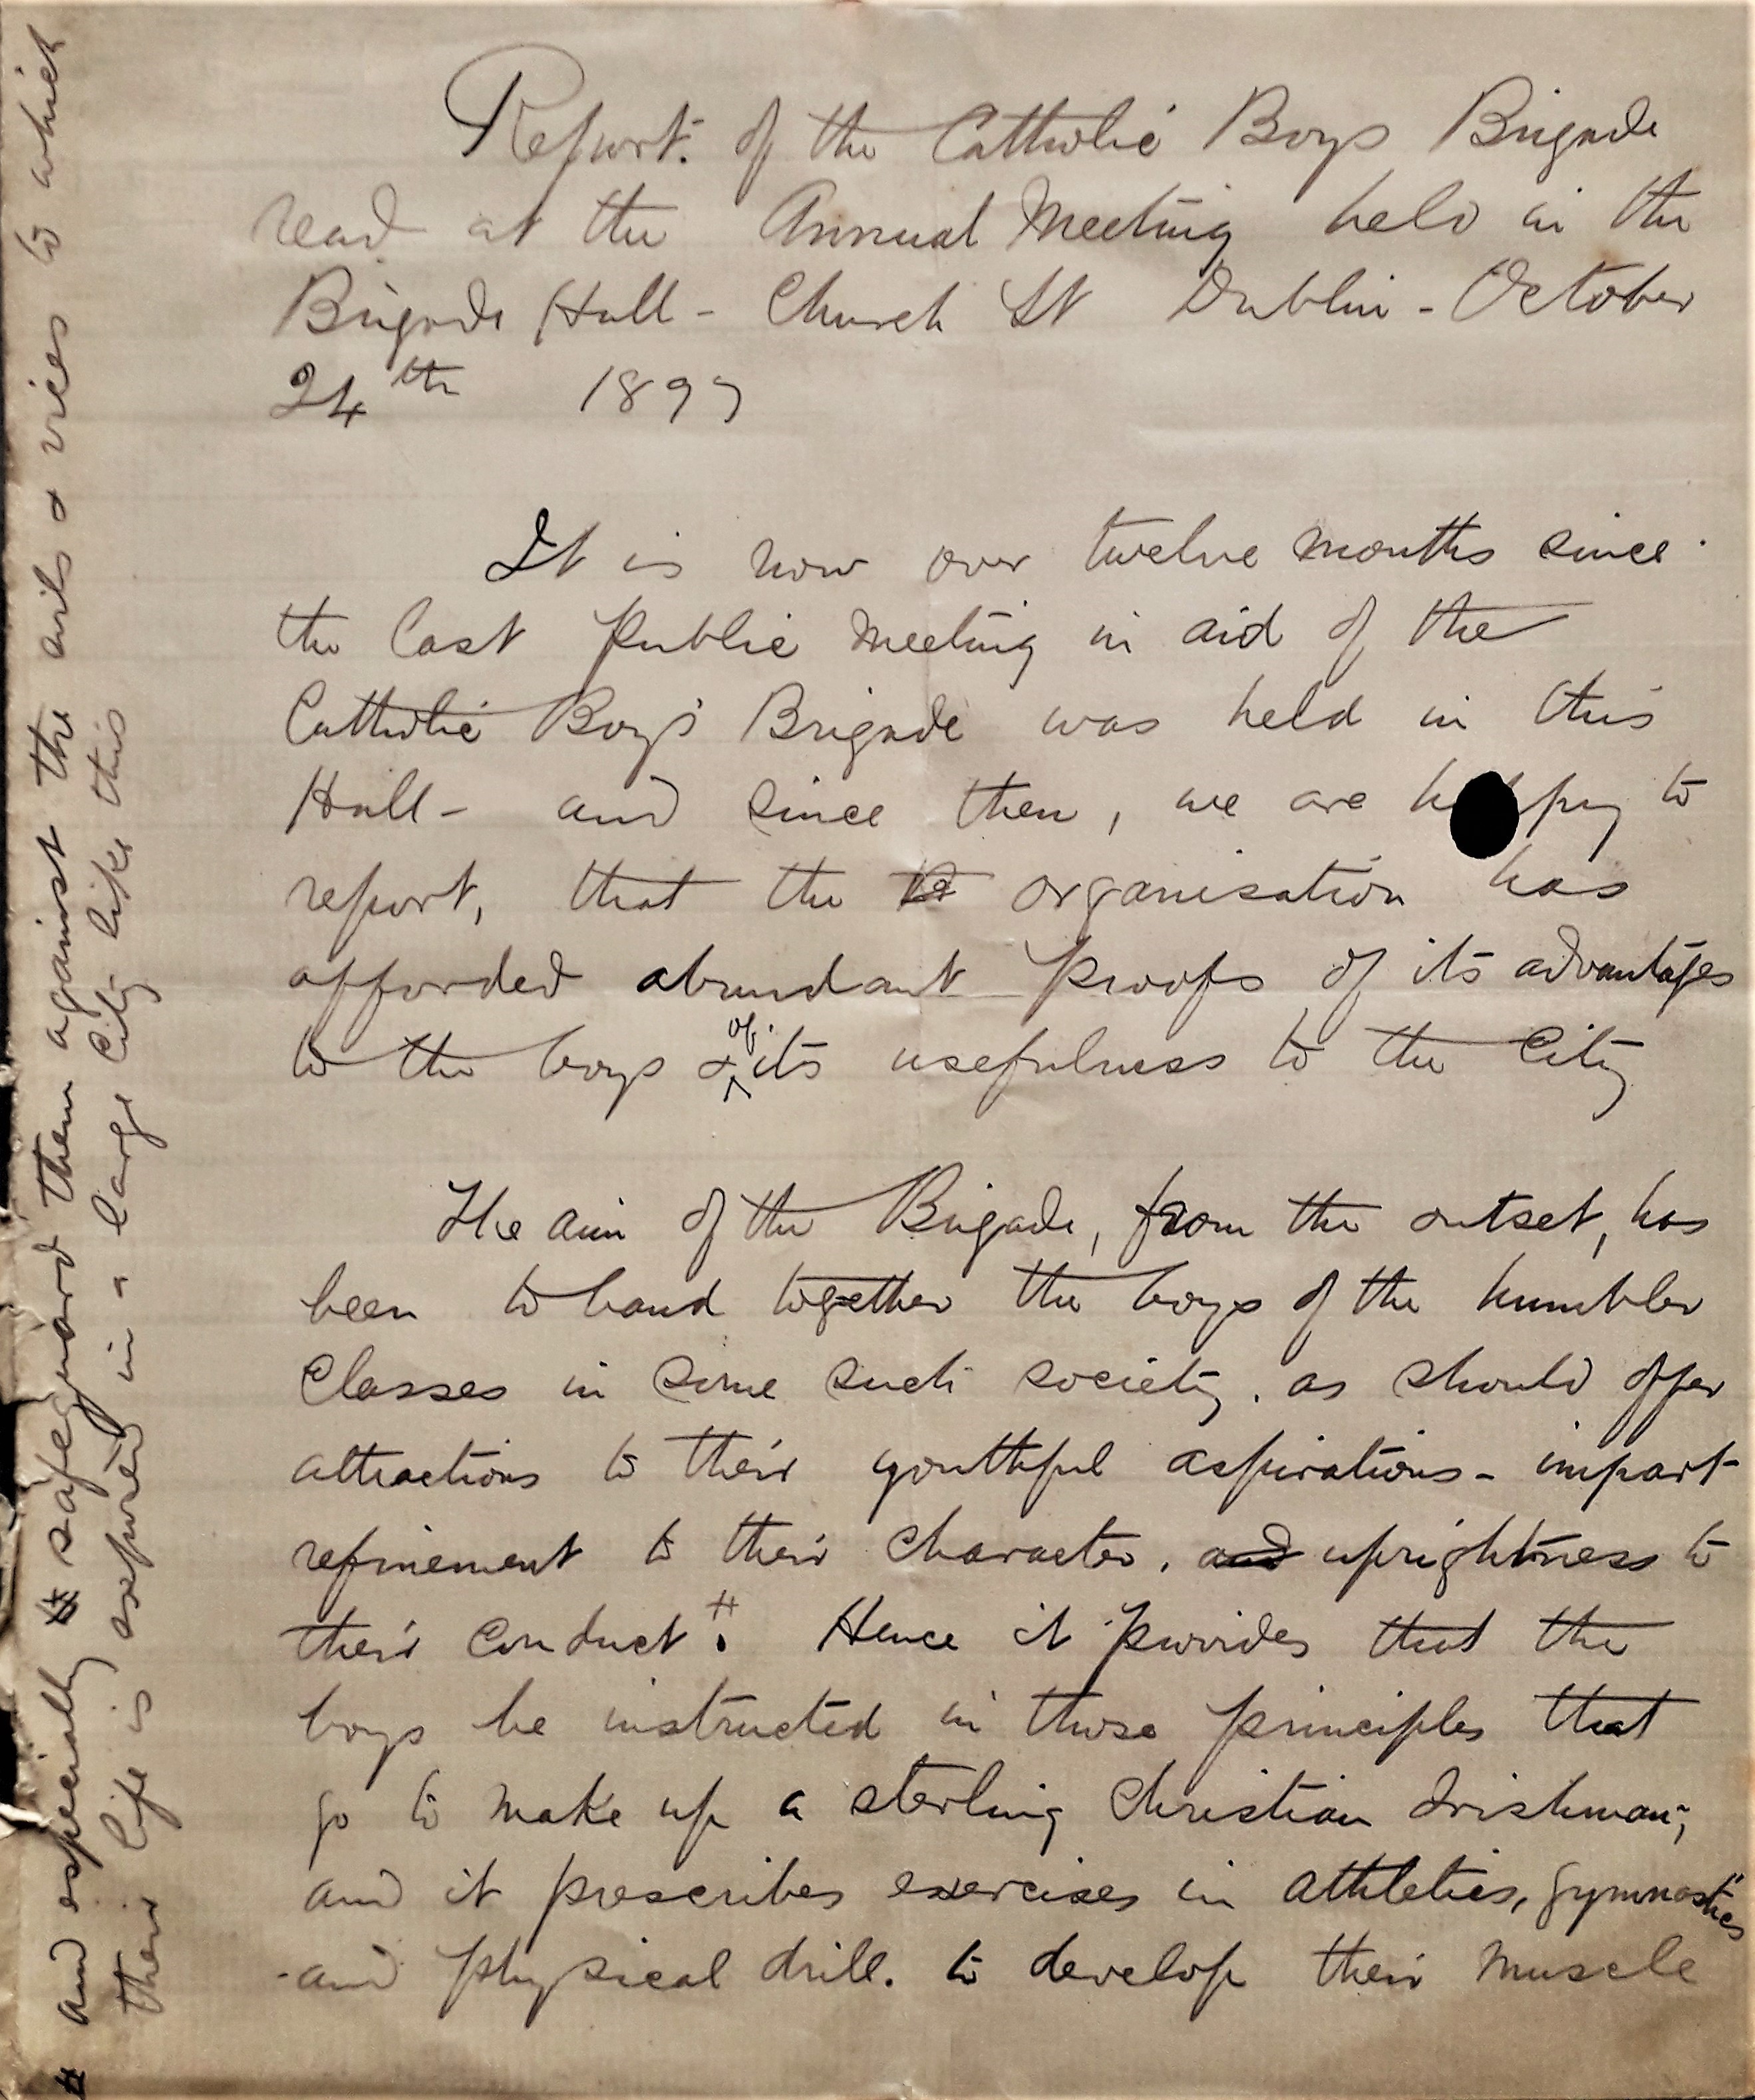 Report. of the Catholic Boys Brigade
read at the Annual Meeting held in the
Brigade Hall - Church St Dublin - October
24th 1897
It is now over twelve months since
the last public meeting in aid of the
Catholic Boys' Brigade was held in this
Hall - and since then, we are happy to
report, that the organisation has
afforded abundant proofs of its advantages
to the boys & of its usefulness to the City
The aim of the Brigade, from the outset, has
been to band together the boys of the humbler
classes in some such society. as should offer
attractions to their youthful aspirations - impart
refinement to their character. and uprightness to
their conduct #. Hence it provides that the
boys be instructed in those principles that
go to make up a sterling Christian Irishman;
and it prescribes exercises in athletics, gymnastics
-and physical drill. to develop their muscle
# and especially to safeguard them against the evils & vices to which
their life is exposed in a large City like this